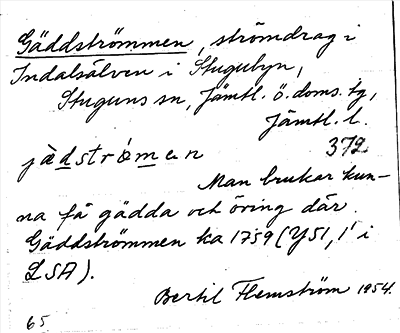 Gäddströmmen, strömdrag i
Indalsälven i Stugubyn,
Stuguns sn, Jämtl. ö. doms. tg,
Jämtl. l.
jädströmen 372.
Man brukar kun-
na få gädda och öring där.
Gäddströmmen ka 1759 (Y51, 1 i
LSA).
Bertil Flemström 1954.
65